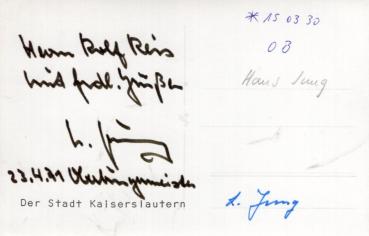 Herrn Rolf Reis
mit frdl. Grüßen
H. Jung
23.4.71 Oberbürgermeister
Der Stadt Kaiserslautern
* 15 03 30
OB
Hans Jung
H. Jung